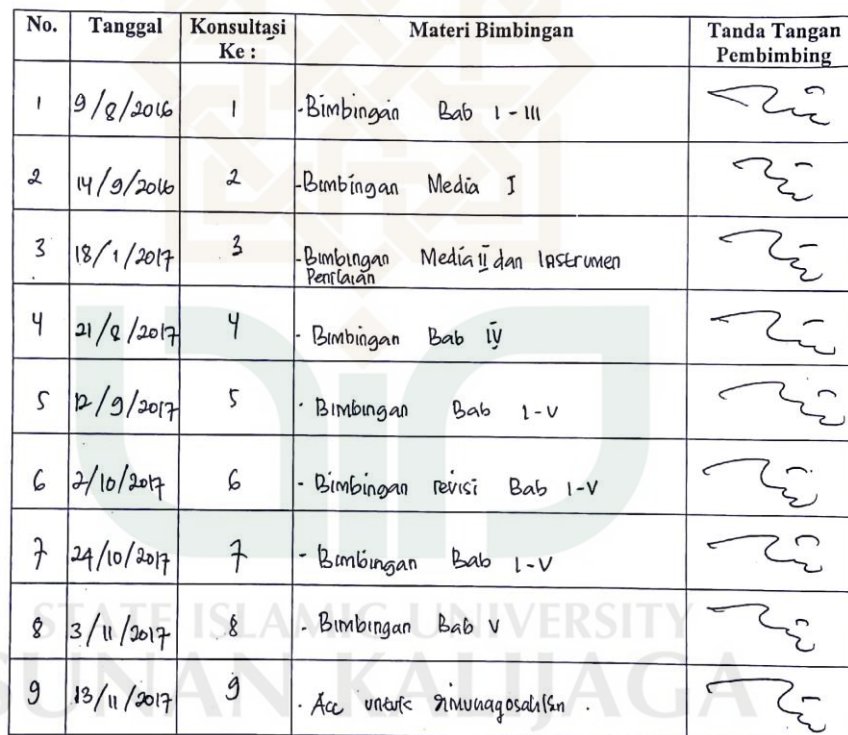 No. Tanggal Konsultasi Ke : Materi Bimbingan Tanda Tangan Pembimbing
1 9/8/2016 1 -Bimbingan Bab I - III
2 14/9/2016 2 -Bimbingan Media I
3 18/1/2017 3 -Bimbingan Media II dan Instrumen
Penilaian
4 21/8/2017 4 - Bimbingan Bab IV
5 12/9/2017 5 - Bimbingan Bab I-V
6 2/10/2017 6 - Bimbingan revisi Bab I-V
7 24/10/2017 7 - Bimbingan Bab I-V
8 3/11/2017 8 - Bimbingan Bab V
9 13/11/2017 9 - Acc untuk dimunaqosahkan .
STATE ISLAMIC UNIVERSITY
SUNAN KALIJAGA